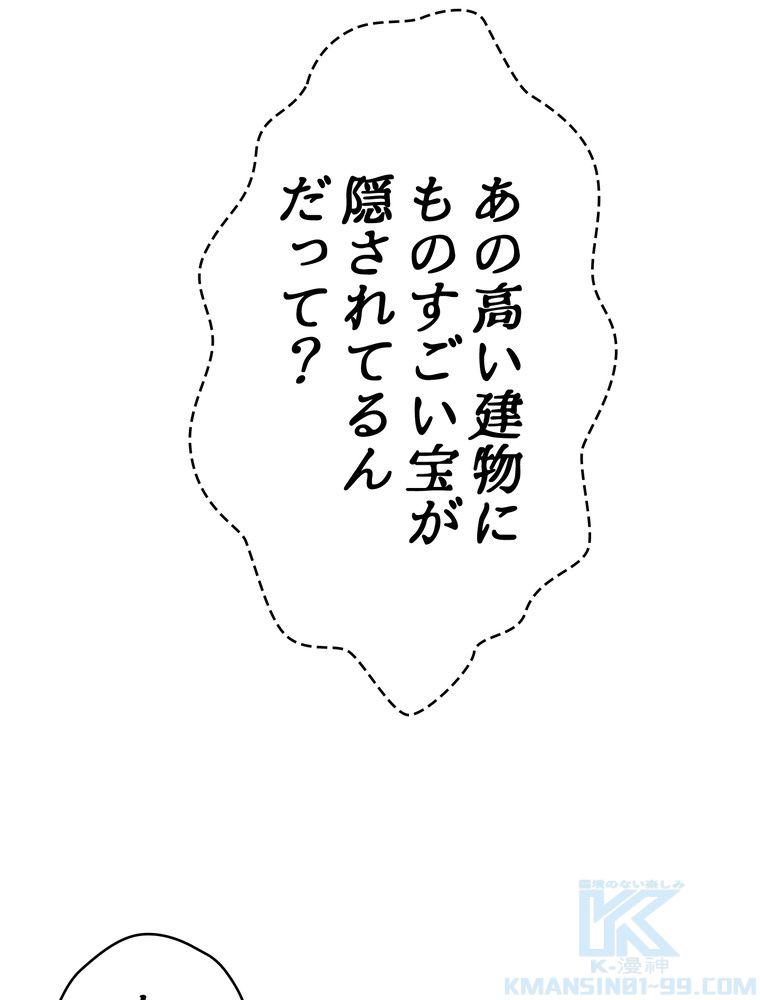 あの高い建物に
ものすごい宝が
隠されてるん
だって？
K-漫神
KMANSIN01-99.COM